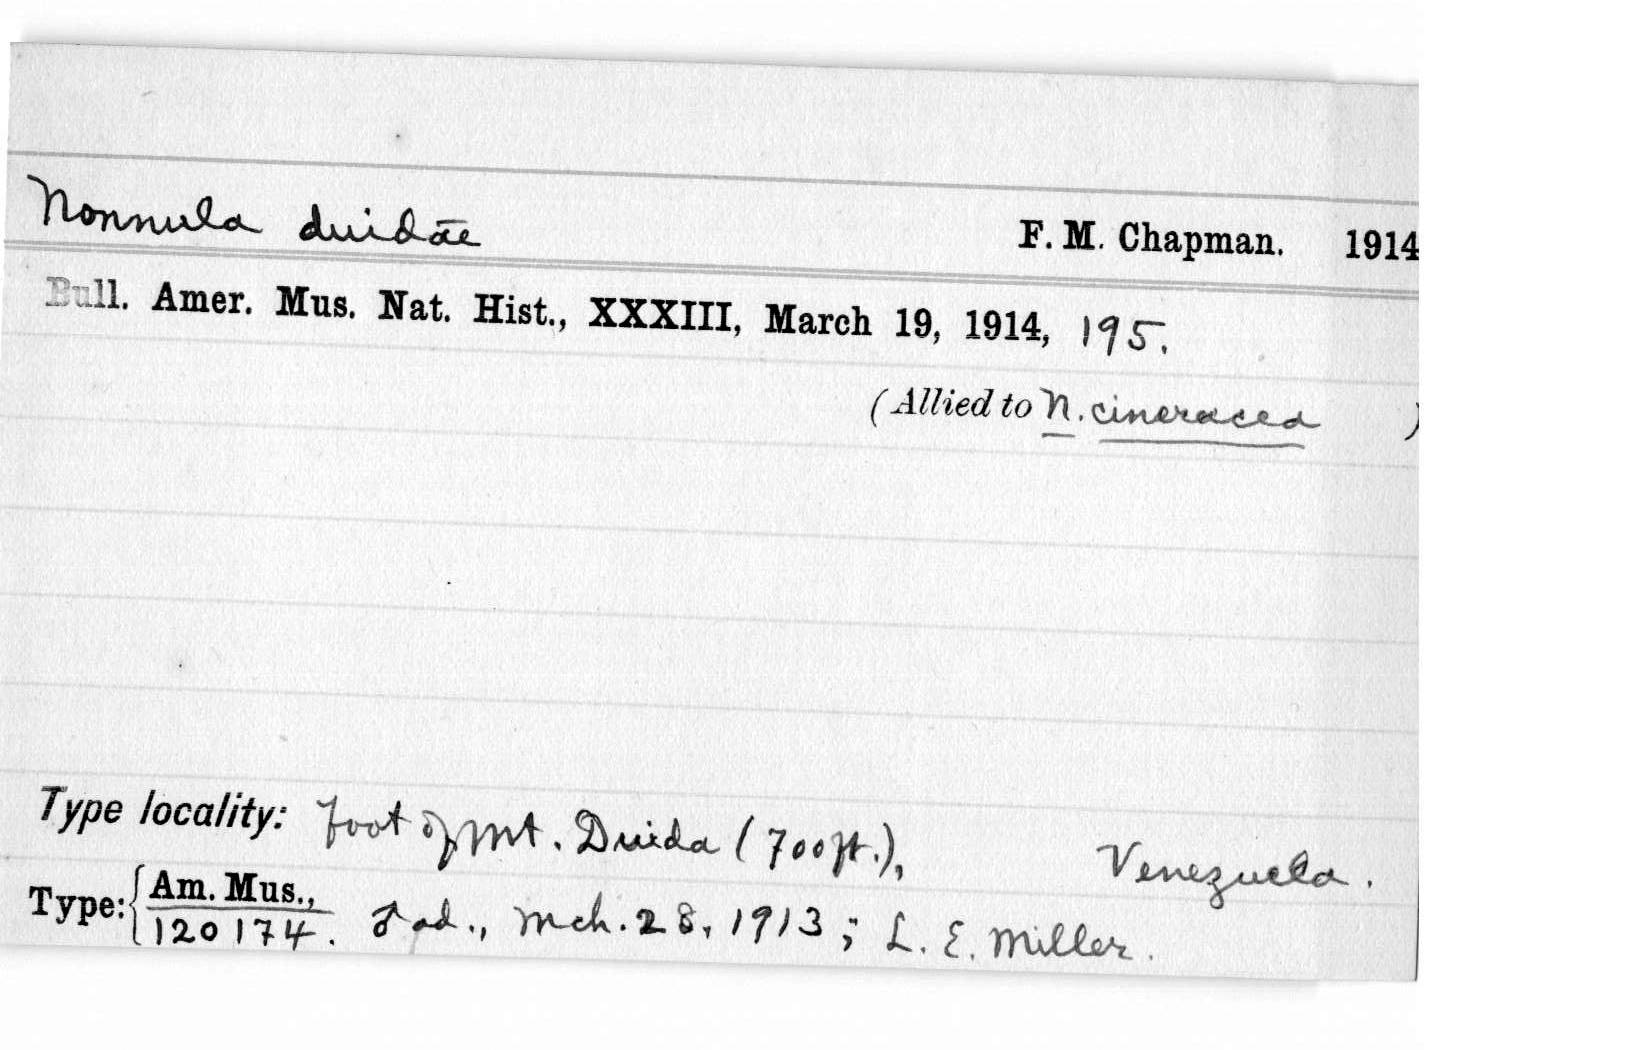 Nonnula duidae F. M. Chapman. 1914
Bull. Amer. Mus. Nat. Hist., XXXIII, March 19, 1914, 195.
(Allied to N. cineracea )
Type locality: foot of Mt. Duida (700 ft.), Venezuela.
Type: { Am. Mus., 120174. ♂ ad., Mch. 28, 1913; L. E. Miller.